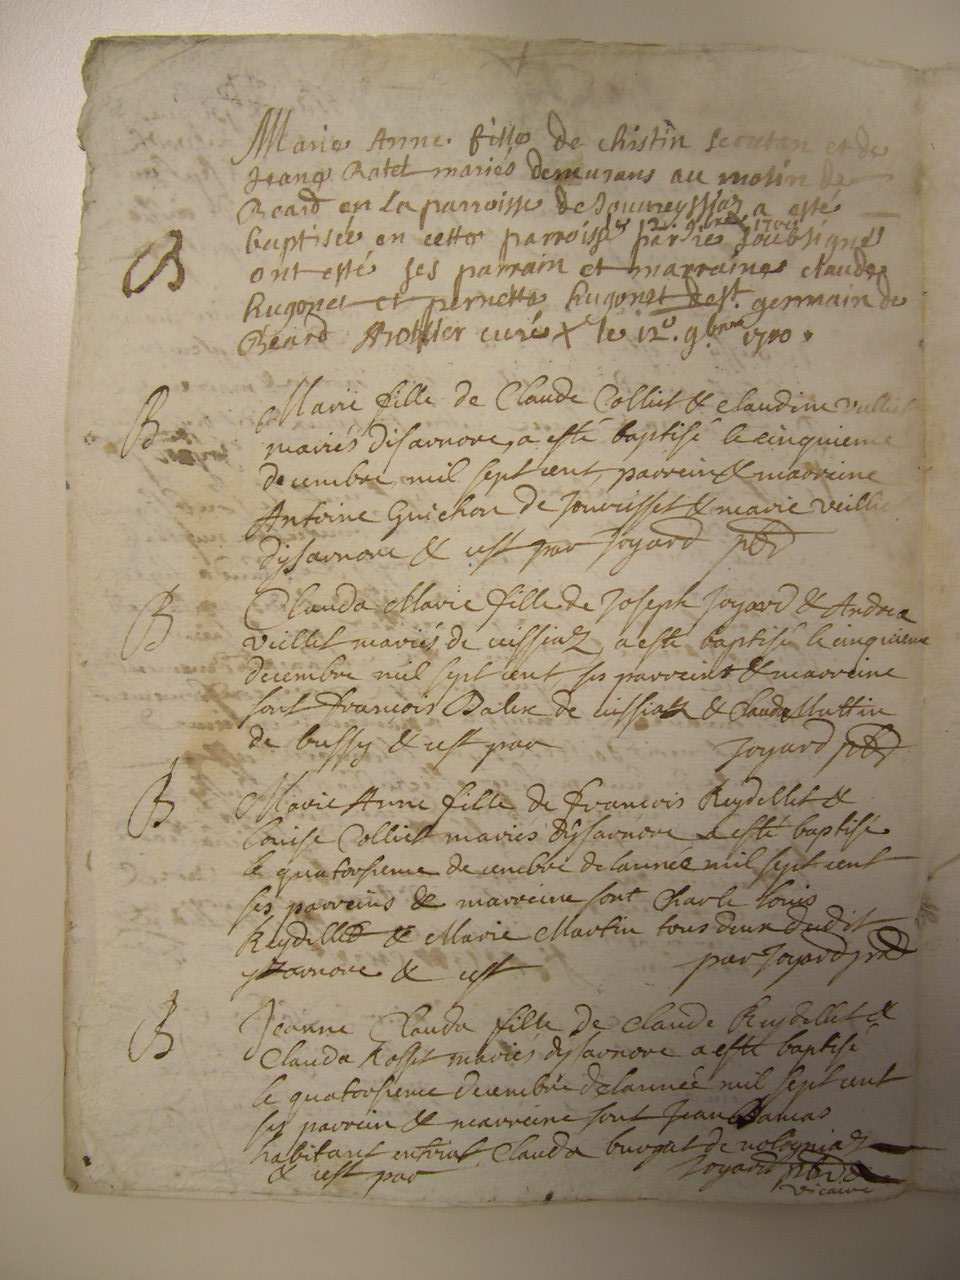 Marie Anne fille de Christin et de
Jeane Ratel mariés demurans au molin de
Beard en La parroisse de a esté
le 12e. 9bre 1700
baptisée en cette parroisse par je soubsigné
B
ont esté ses parrain et marraine claude
Hugonet et pernette Hugonet de st. germain de
Beard curé X le 12e. 9bre 1700.
B
Marie fille de Claude Colliet & claudine
mariés disarnore, a esté baptisé le cinquieme
decembre mil sept cent, parrein & marreine
Antoine Guichon de & marie veillet
dysarnore & cest par Joyard pbr
B
Clauda Marie fille de Joseph Joyard & Andrea
veillet mariés de cissiaz, a esté baptisé le cinquieme
decembre mil sept cent ses parrein & marreine
sont francois de cissiaz & Clauda Muttin
de bussy & cest par Joyard pbr
B
Marie Anne fille de francois Reydellet &
louise Colliet mariés dysarnore a esté baptisé
le quatorsieme decembre de lannée mil sept cent
ses parreins & marreine sont Charle louis
Reydellet & Marie Martin tous deux dudit
ysarnore & cest par Joyard pbr
B
Jeanne Clauda fille de Claude Reydellet &
Clauda Rosset mariés dysarnore a esté baptisé
le quatorsieme decembre de lannée mil sept cent
ses parrein & marreine sont Jean Damas
habitant Clauda de volognia
& cest par Joyard pbr &
vicaire